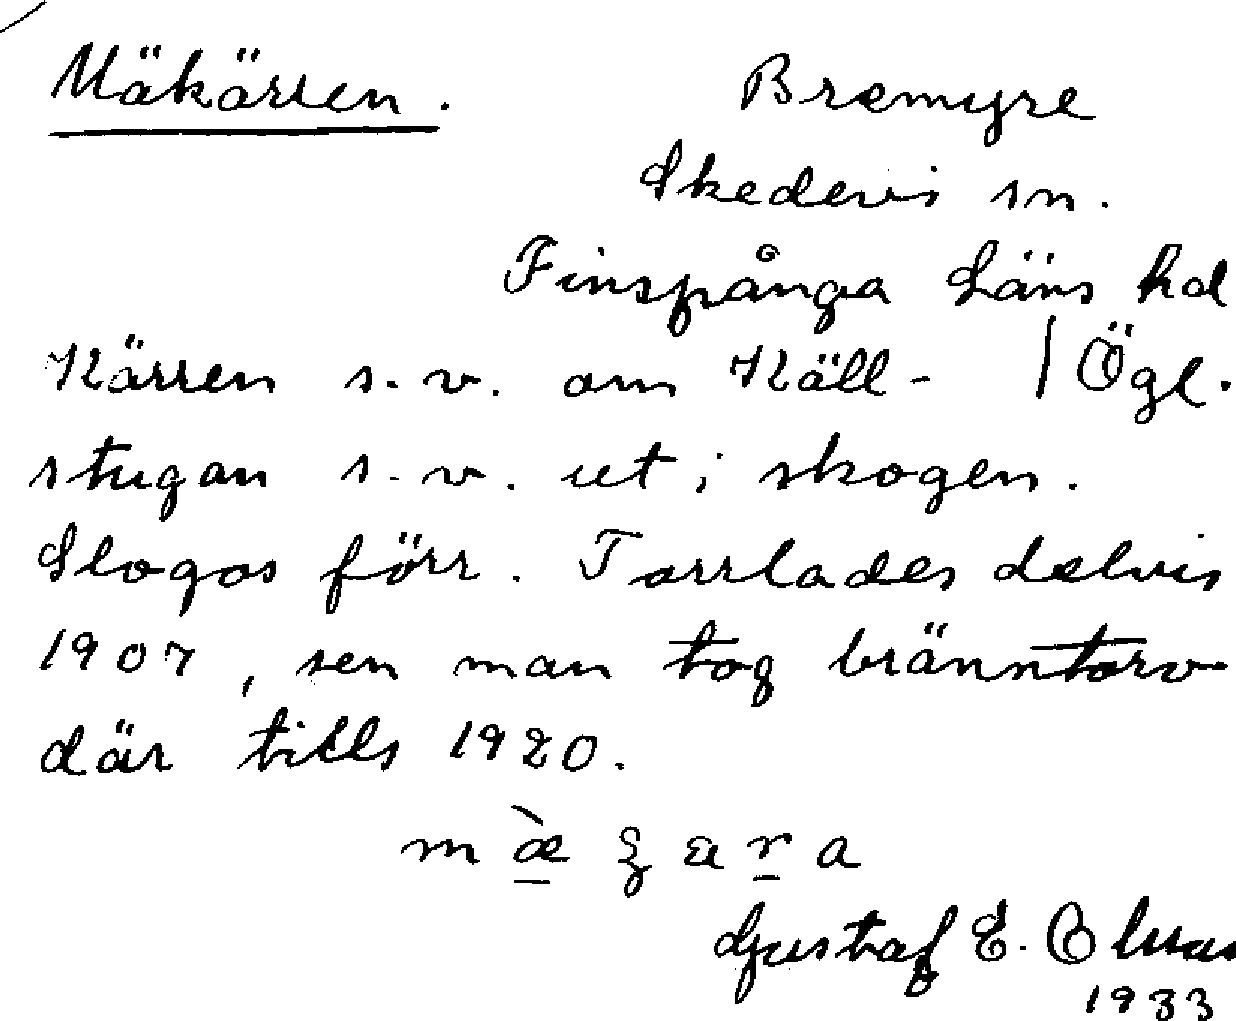 Mäkärren. Bremyre
Skedevi sn.
Finspånga Läns hd
Kärren s.v. om Käll- / Ögl.
stugan s.v. ut i skogen.
Slogos förr. Torrlades delvis
1907, sen man tog bränntorv
där tills 1920.
Gustaf E.
1933